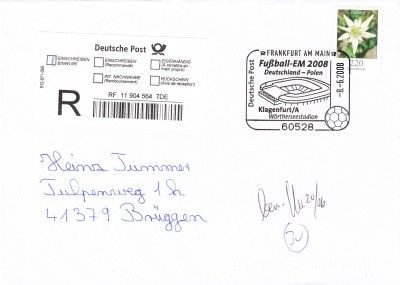 Deutsche Post
EINSCHREIBEN EINWURF
EINSCHREIBEN (Recommandé)
EIGENHÄNDIG (A remettre en main propre)
INT. NACHNAHME (Remboursement)
RÜCKSCHEIN (Avis de réception)
R
RF 11 904 564 7DE
FRANKFURT AM MAIN
Deutsche Post
Fußball-EM 2008
Deutschland – Polen
Klagenfurt/A
Wörtherseestadion
60528
– 8.-6.2008
220
Heinz Tummer
Tulpenweg 1h
41379 Brüggen